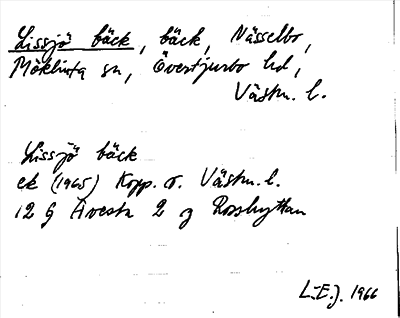 Lissjö bäck, bäck, Nässelbo,
Möklinta sn, Övertjurbo hd,
Västm. l.
Lissjö bäck
ek (1965) Kopp. o. Västm. l.
12 G Avesta 2 g Rosshyttan
L-E.J. 1966